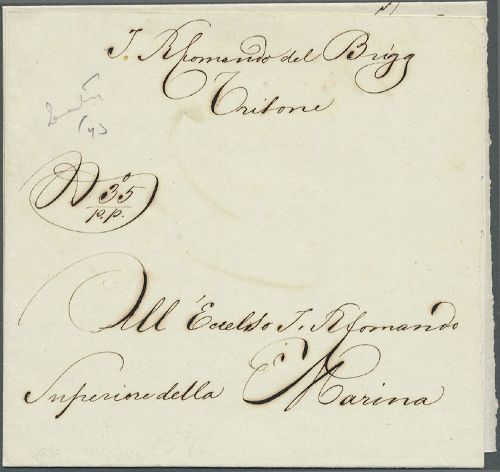 I. R. Comando del Brigg
Tritone
N° 35
p.p.
All' Eccelso I. R. Comando
Superiore della Marina